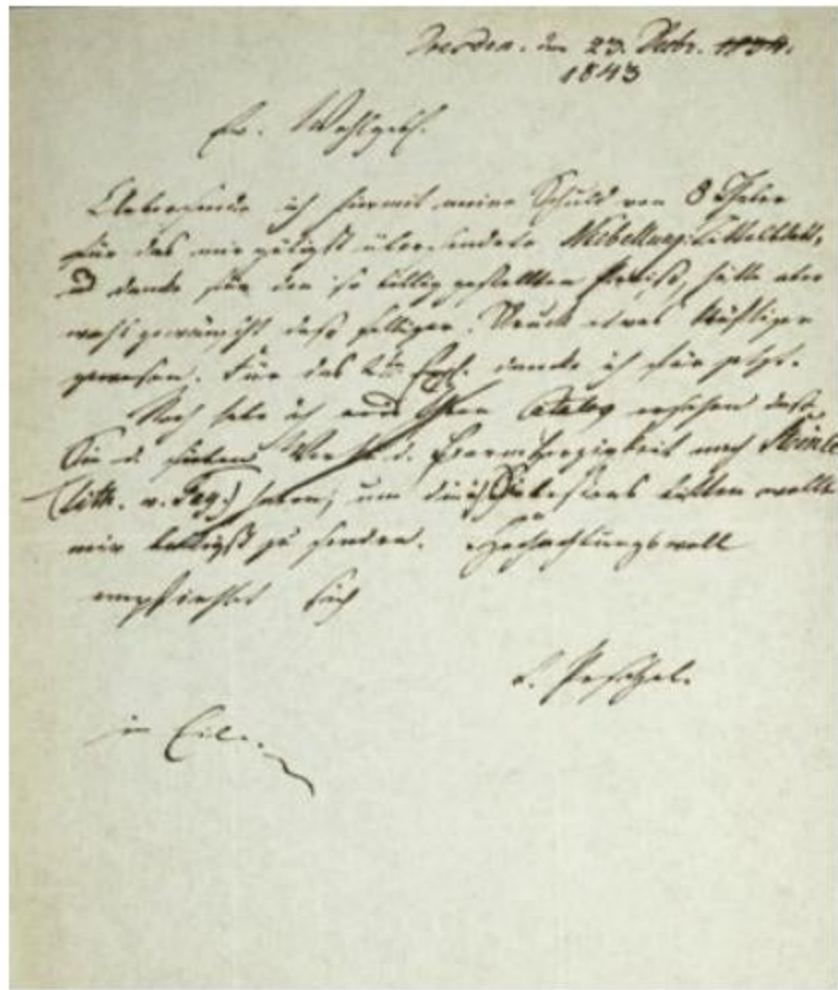 Dresden. den 23. Decbr. 1834.
1843
Ew. Wohlgeb.
Uebersende ich hiermit meine Schuld von 8 Thaler
für das mir gütigst übersendete Nibelungen Titelblatt,
und danke für den so billig gestellten Preiß, hätte aber
wohl gewünscht daß selbiger Druck etwas kräftiger
gewesen. Für das 2te Expl. danke ich für jetzt.
Noch habe ich aus Ihren Catalog ersehen daß
Sie d. sieben Werke d. Barmherzigkeit nach Steinle
(lith. v. Fay:) haben, um bitten wollte
mir baldigst zu senden. Hochachtungsvoll
empfiehlet sich
C. Peschel.
in Eile.